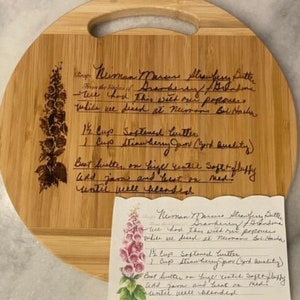 Neiman Marcus Strawberry Butter
Strawberry / Grandma
We had this with our popovers
while we dined at Neimans
1½ Cup Softened butter
1 Cup Strawberry Jam (Good Quality)
Beat butter on high until Soft & fluffy
Add jam and beat on med.
until well blended
Neiman Marcus Strawberry Butter
Strawberry / Grandma
We had this with our popovers
while we dined at Neimans
1½ Cup Softened butter
1 Cup Strawberry Jam (Good Quality)
Beat butter on high until Soft & fluffy
Add jam and beat on med.
until well blended